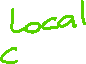 Local
C